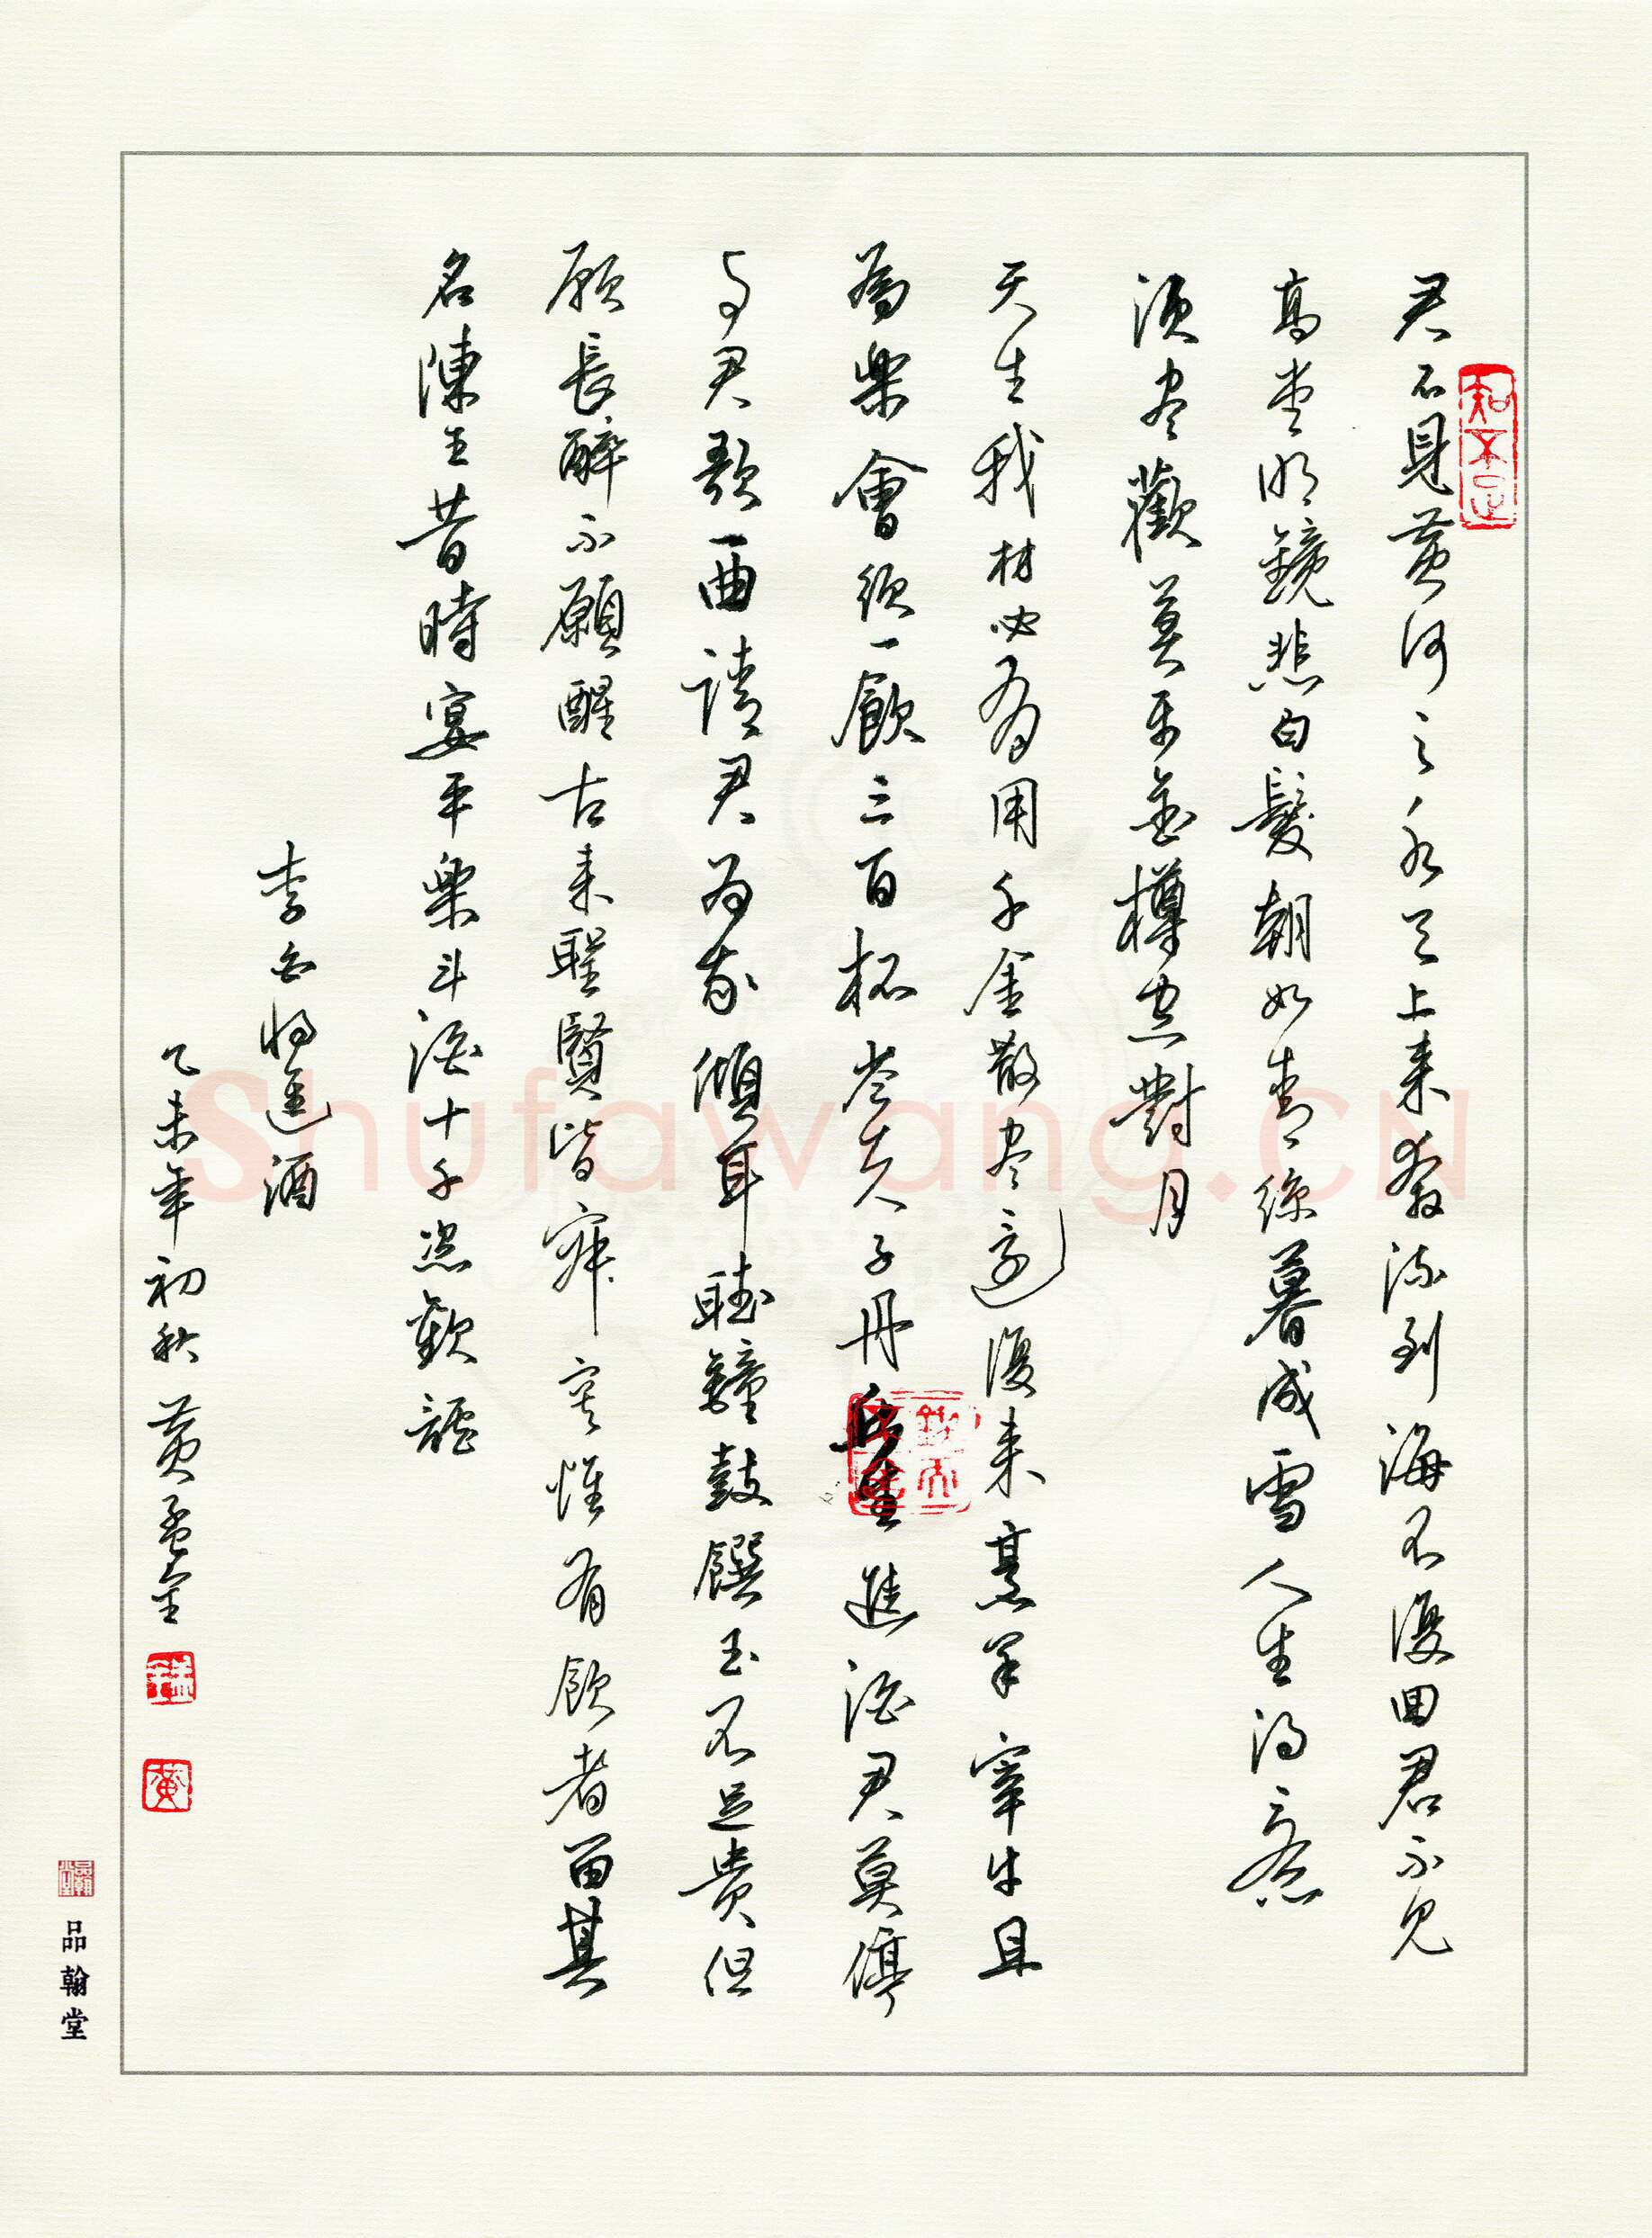 君不見黄河之水天上来奔流到海不復回君不見
高堂明鏡悲白髮朝如青絲暮成雪人生得意
須尽歡莫使金樽空對月
天生我材必有用千金散尽還復来烹羊宰牛且
為樂會須一飲三百杯岑夫子丹丘生進酒君莫停
与君歌一曲請君为我傾耳聴鐘鼓饌玉不足貴但
願長醉不願醒古来聖賢皆寂寞惟有飲者留其
名陳王昔時宴平樂斗酒十千恣歡謔
李白将進酒
乙未年初秋黄孟金
知不足
黄
品翰堂
品翰堂
Shufawang.CN